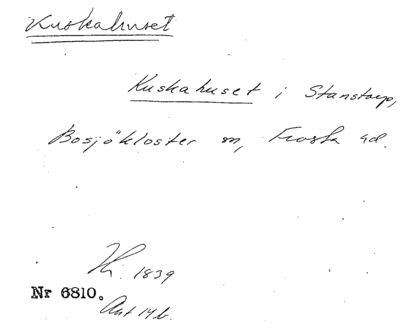 Kuskahuset
Kuskahuset i Stanstorp,
Bosjökloster sn, Frosta hd.
Hf. 1839
Nr 6810.
Ant 14 b.